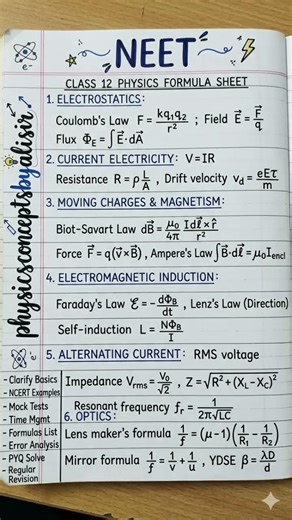 NEET
CLASS 12 PHYSICS FORMULA SHEET
physicsconceptsbyalisir
e-
1. ELECTROSTATICS:
Coulomb's Law F = kq₁q₂/r² ; Field E⃗ = F⃗/q
Flux Φ_E = ∫E⃗·dA⃗
2. CURRENT ELECTRICITY: V=IR
Resistance R = ρ L/A, Drift velocity v_d = eEτ/m
3. MOVING CHARGES & MAGNETISM:
Biot-Savart Law dB⃗ = μ₀/4π Idl⃗×r̂/r²
Force F⃗ = q(v⃗×B⃗), Ampere's Law ∫B⃗·dl⃗ = μ₀I_encl
4. ELECTROMAGNETIC INDUCTION:
Faraday's Law ℰ = -dΦ_B/dt, Lenz's Law (Direction)
Self-induction L = NΦ_B/I
5. ALTERNATING CURRENT: RMS voltage
Impedance V_rms = V₀/√2, Z = √R² + (X_L - X_C)²
Resonant frequency f_r = 1/2π√LC
6. OPTICS:
Lens maker's formula 1/f = (μ-1)(1/R₁ - 1/R₂)
Mirror formula 1/f = 1/v + 1/u, YDSE β = λD/d
e-
- Clarify Basics
- NCERT Examples
- Mock Tests
- Time Mgmt
- Formulas List
- Error Analysis
- PYQ Solve
- Regular
Revision